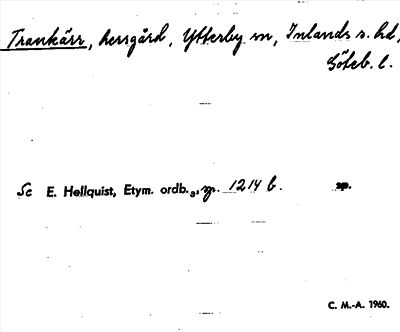 Trankärr, herrgård, Ytterby sn, Inlands s. hd,
Göteb. l.
Se E. Hellquist, Etym. ordb.3, sp. 1214 b. sp.
C. M.-A. 1960.